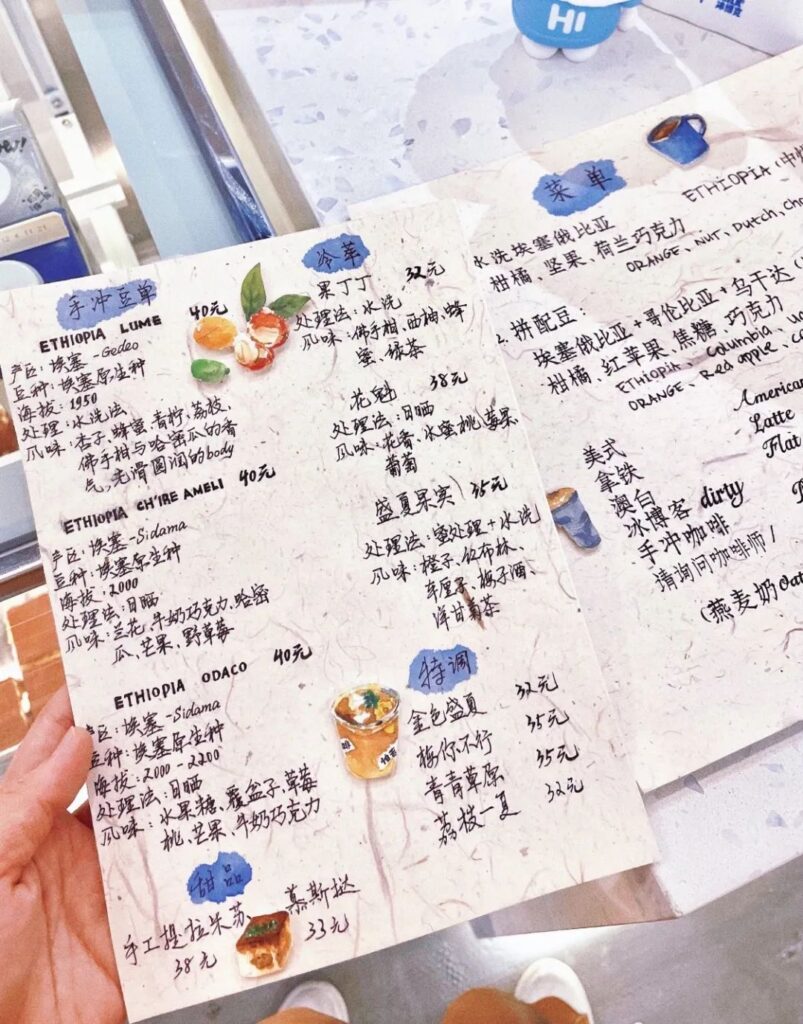 HI
手冲豆单
ETHIOPIA LUME 40元
产区：埃塞-Gedeo
豆种：埃塞原生种
海拔：1950
处理：水洗法
风味：杏子、蜂蜜、青柠、荔枝、
佛手相与哈密瓜的香
气，光滑圆润的body
ETHIOPIA CH'IRE AMELI 40元
产区：埃塞-Sidama
豆种：埃塞原生种
海拔：2000
处理法：日晒
风味：兰花、牛奶巧克力、哈密
瓜、芒果、野草莓
ETHIOPIA ODACO 40元
产区：埃塞-Sidama
豆种：埃塞原生种
海拔：2000-2200
处理法：日晒
风味：水果糖、覆盆子、草莓
桃、芒果、牛奶巧克力
甜品
手工提拉米苏
38元
慕斯挞
33元
冷萃
果丁丁 32元
处理法：水洗
风味：佛手柑、西柚、蜂
蜜、绿茶
花魁 38元
处理法：日晒
风味：花香、水蜜桃、莓果、
葡萄
盛夏果实 35元
处理法：蜜处理+水洗
风味：橙子、乌布林、
车厘子、梅子酒、
洋甘菊茶
特调
金色盛夏 32元
梅你不行 35元
青青草原 35元
荔枝一夏 32元
菜单
ETHIOPIA（中
水洗埃塞俄比亚
柑橘、坚果、荷兰巧克力
ORANGE, NUT, Dutch, cho
2. 拼配豆：
埃塞俄比亚+哥伦比亚+乌干达（
柑橘、红苹果、焦糖、巧克力
ETHIOPIA、Columbia、
ORANGE、Red apple、ca
美式 American
拿铁 Latte
澳白 Flat
冰博客 dirty
手冲咖啡
请询问咖啡师/
（燕麦奶oat